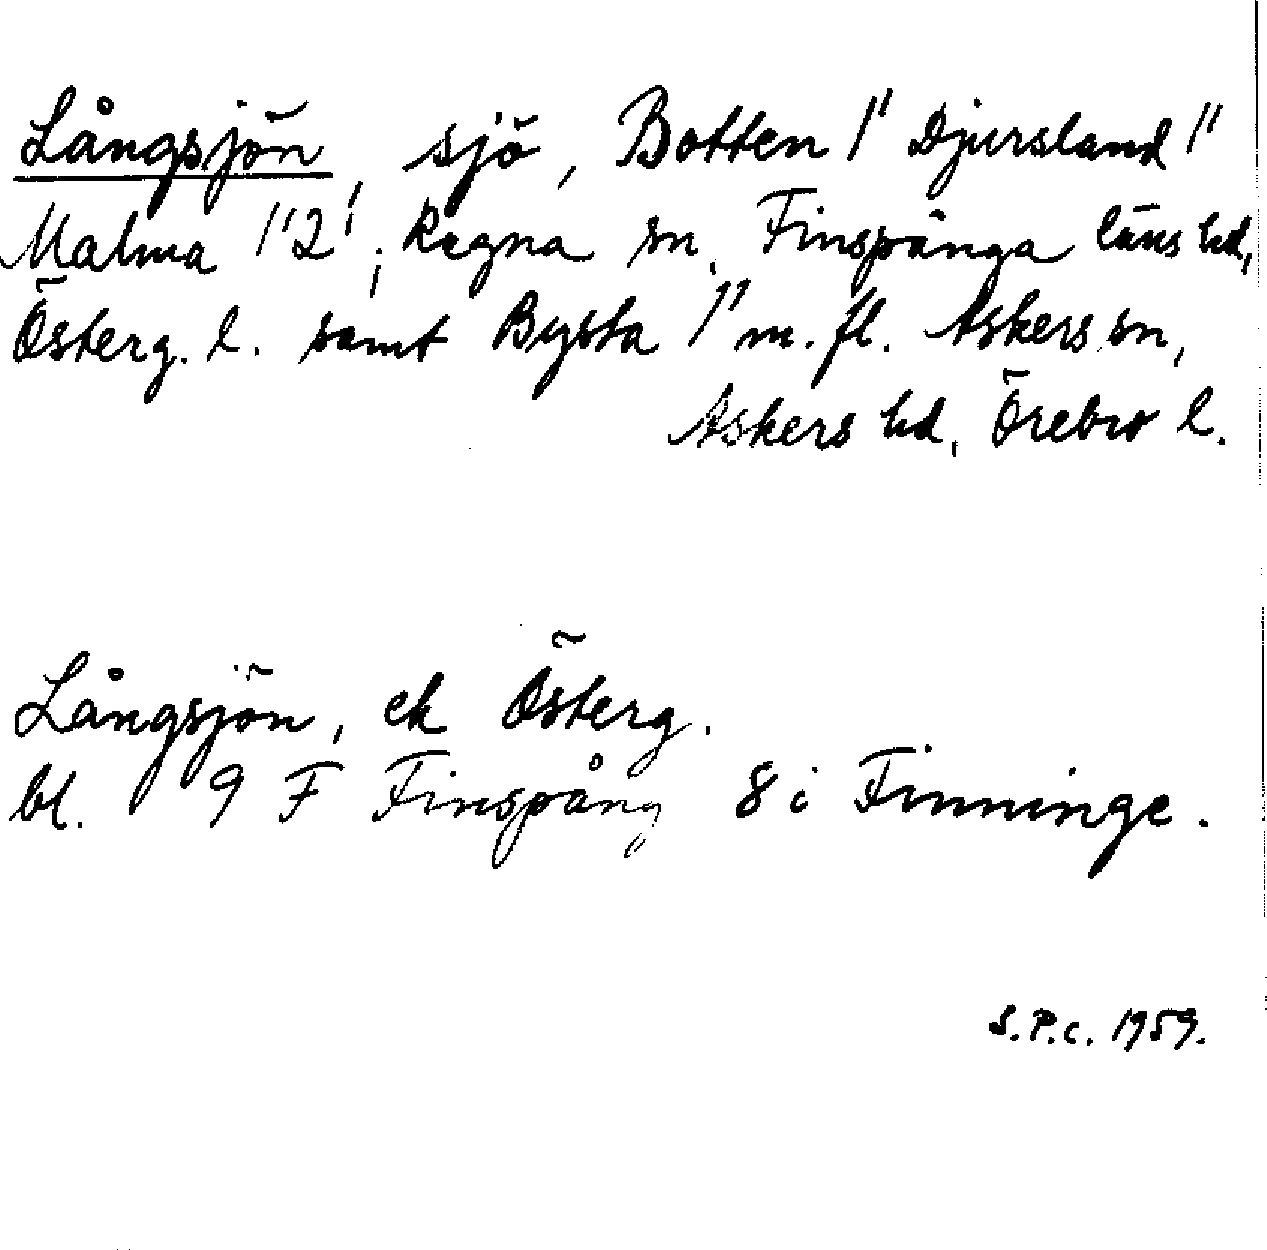 Långsjön, sjö, Botten 1" Djursland 1"
Malma 1"2', Regna sn, Finspånga läns hd,
Österg. l. samt Bysta 1" m. fl. Askers sn,
Askers hd, Örebro l.
Långsjön, ek Österg.
bl. 9 F Finspång 8 i Finninge.
S.P.C. 1959.